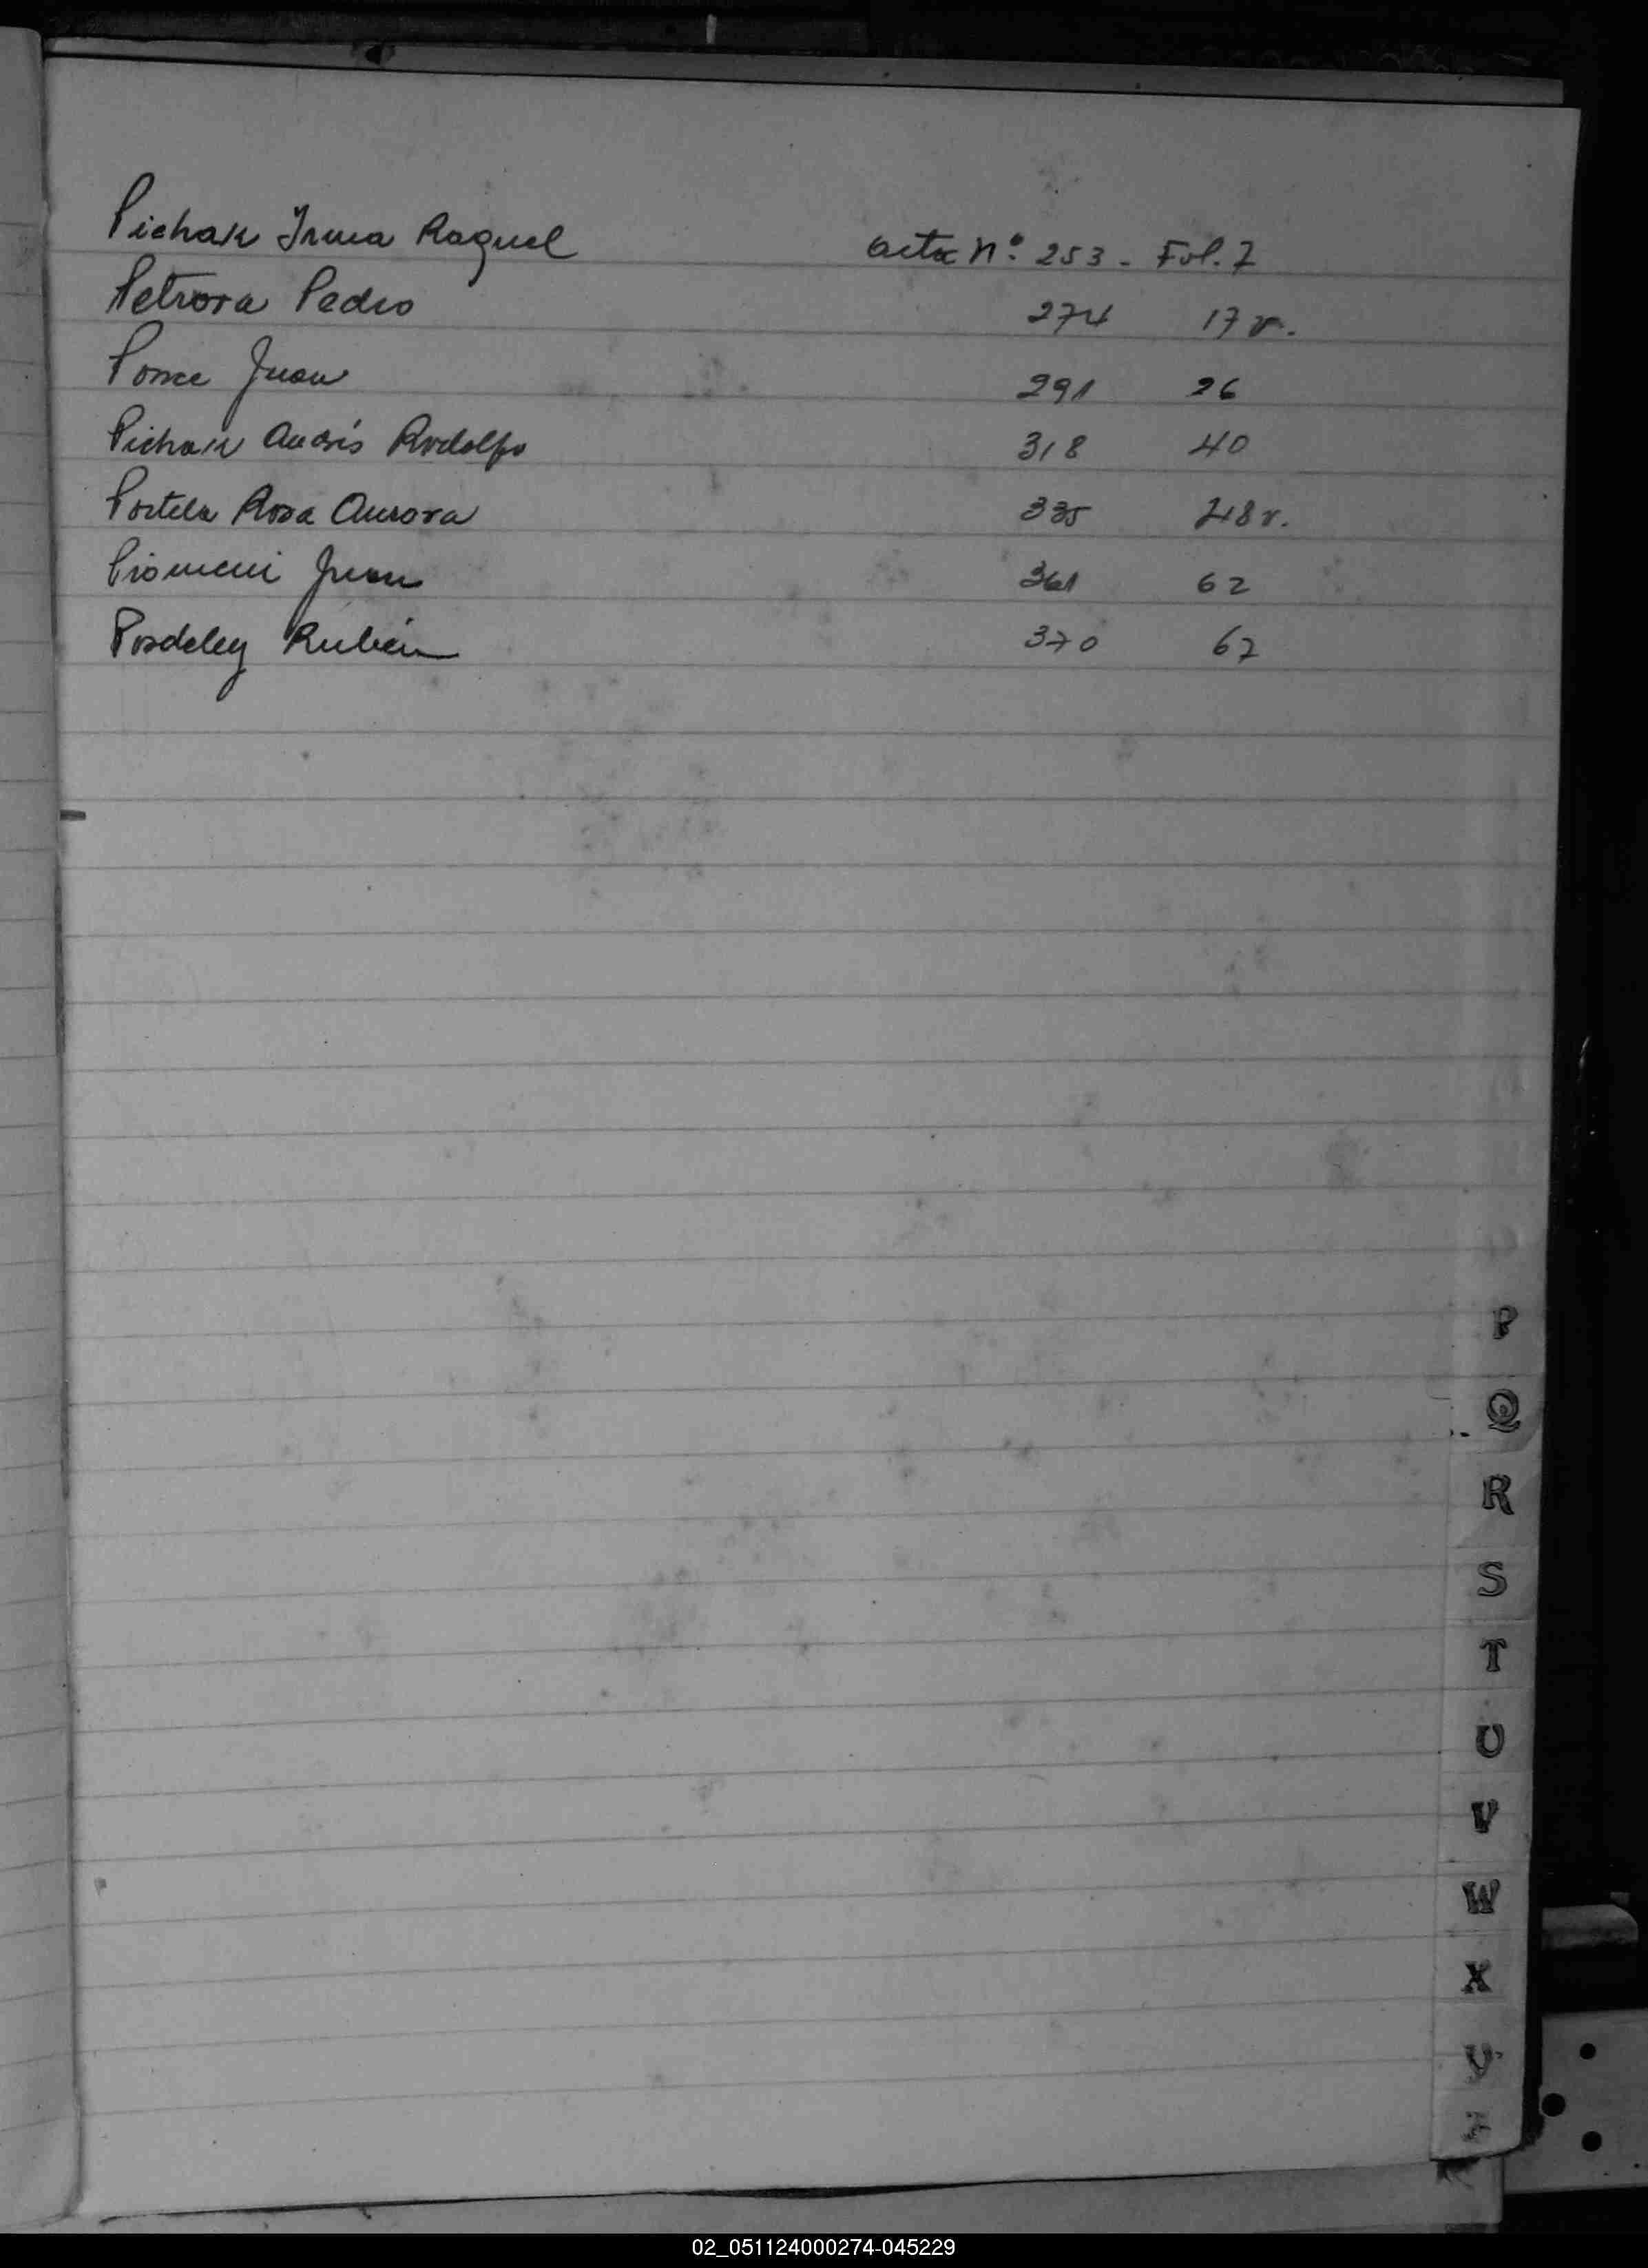 Pichak Irma Raquel acta Nº 253 - Fol. 7
Petrova Pedro 274 17 v.
Ponce Juan 291 26
Pichak Andrés Rodolfo 318 40
Portela Rosa Aurora 335 48 v.
Juan 361 62
Posdeley Rubén 370 67
P
Q
R
S
T
U
V
W
X
Y
Z
02_051124000274-045229